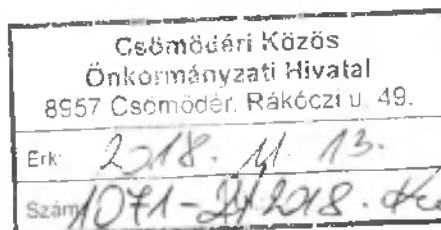 Csömödéri Közös
Önkormányzati Hivatal
8957 Csömödér, Rákóczi u. 49.
Érk: 2018. 11. 13.
Szám: 1071-2/2018.